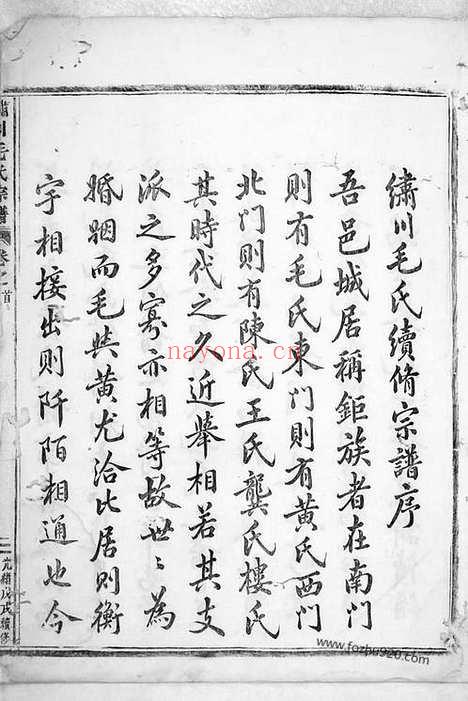 繡川毛氏續脩宗譜序
吾邑城居稱鉅族者在南門
則有毛氏東門則有黃氏西門
北門則有陳氏王氏龔氏樓氏
其時代之久近舉相若其支
派之多寡亦相等故世〻為
婚姻而毛與黃尤洽比居則衡
宇相接出則阡陌相通也今
繡川毛氏宗譜
卷之首
一
光緒戊戌續修
nayona.cn
www.fozhu920.com